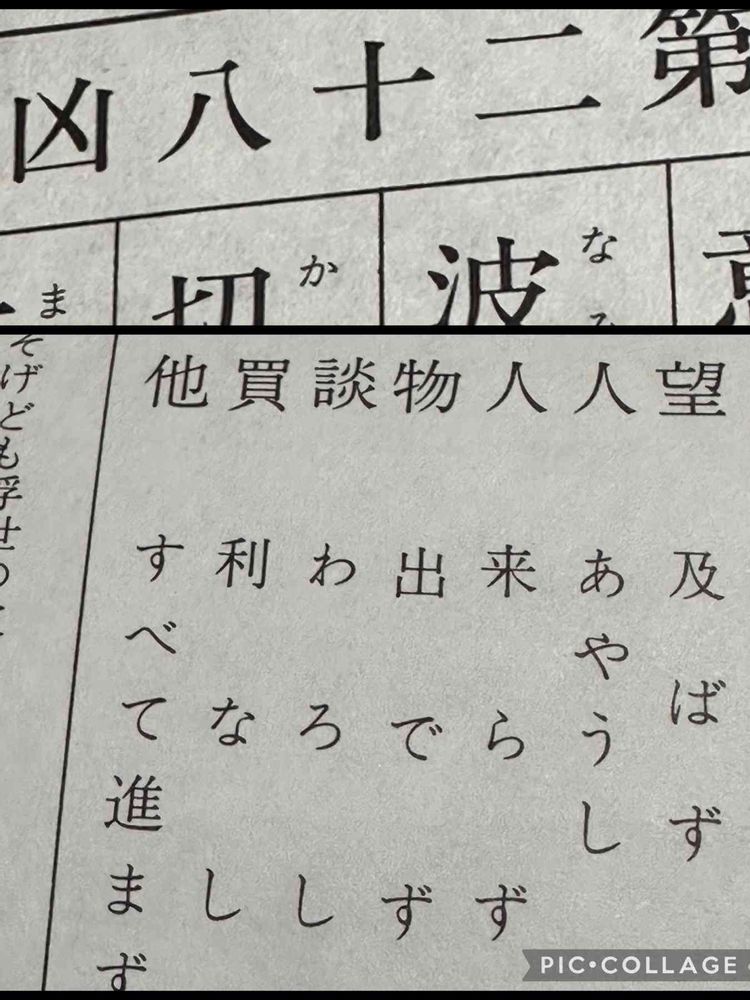 第二十八凶
波
な
か
ま
望 及ばず
人 あやうし
人 来らず
物 出でず
談 わろし
買 利なし
他 すべて進まず
げども浮世の
PIC•COLLAGE